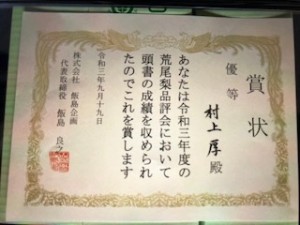 賞状
優等
村上厚殿
あなたは令和三年度の
荒尾梨品評会において
頭書の成績を収められ
たのでこれを賞します
令和三年九月十九日
株式会社 飯島企画
代表取締役 飯島 良之